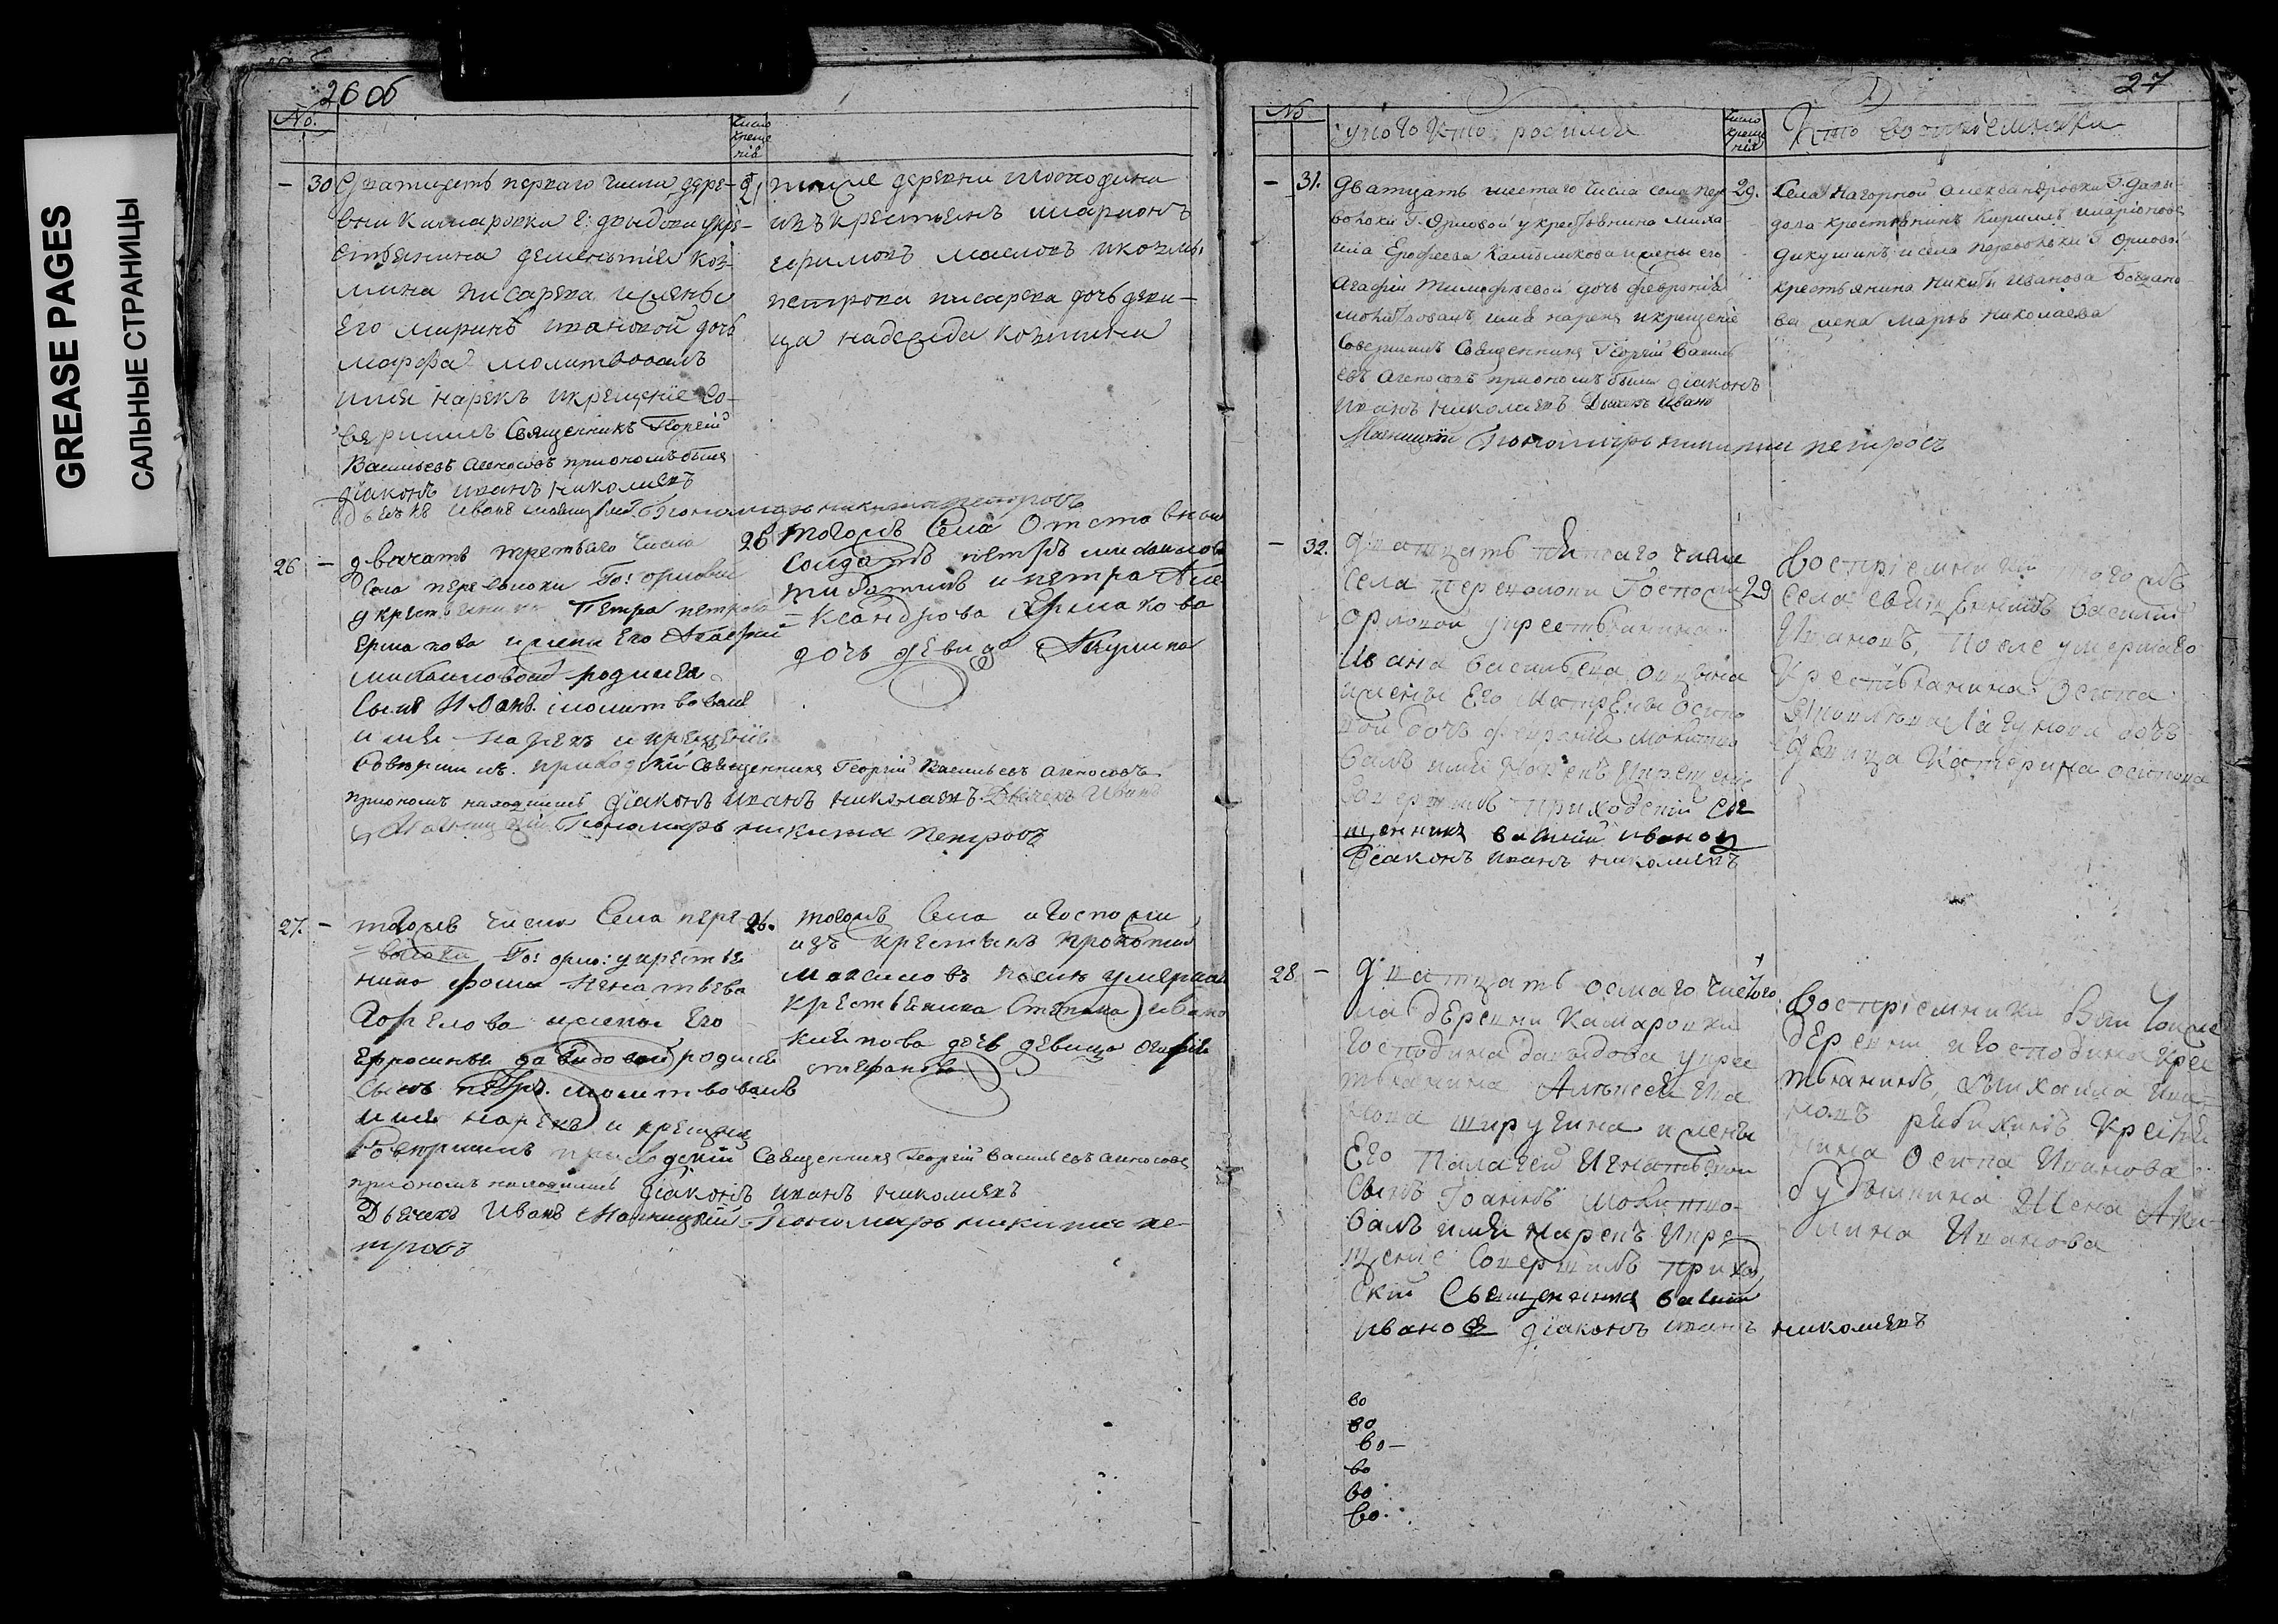 GREASE PAGES
САЛЬНЫЕ СТРАНИЦЫ
26 об
№.
Число
креще
нія
30
Дватцеть перваго числа дере-
вни Камаровки Г: давыдова укре-
стьянина Дементія Коз-
мина писарева и жены
Его Марины ивановой дочь
марфа молитвовалъ
имя нарекъ и крещеніе со-
вершилъ Священникъ Георгій
Васильевъ приономъ были
діаконъ иванъ николаевъ
Дьячекъ Иванъ Пономарь никита петровъ
21
деревни и господина
изъ крестьянъ иларионъ
ефимовъ масловъ и козмы
петрова писарева дочь деви-
ца надежда козмина
26
двачать третьяго числа
Села переволоки Го: орловой
у крестьянина Петра петрова
Ермакова и жены Его Агафьи
михайловой родился
Сынъ Иванъ молитвовалъ
имя нарекъ и крещеніе
совершилъ приходскій Священникъ Георгій Васильевъ
приономъ находились діаконъ иванъ николаевъ Дьячекъ Иванъ
Пономарь никита петровъ
26
тогожъ Села Отставной
Солдатъ петръ михайловъ
и петра Але
ксандрова Ермакова
дочь девица Акулина
27.
тогожъ числа Села пере-
волоки Го: орло: у крестья
нина фомы Игнатьева
Горелова и жены Его
Ефросиньи давидовой родился
Сынъ петръ. молитвовалъ
имя нарекъ и крещеніе
Совершилъ приходскій Священникъ Георгій Васильевъ
приономъ находились діаконъ иванъ николаевъ
Дьячекъ Иванъ Пономарь никита пе-
тровъ
26.
тогожъ Села и Госпожи
изъ крестьянъ прокофий
максимовъ после умершаго
Крестьянина Степана
дочь девица
стефанова
27
№
у кого кто родился
Число
креще
нія
Кто восприемники
31.
Дватцать шестаго числа села пер
волоки Г. Орловой у крестьянина Миха
ила Ерофеева Калмыкова и жены его
Агафіи Тимофеевой дочь Феврония
молитвовалъ имя нарекъ и крещеніе
Совершилъ Священникъ Георгій Василь
евъ приономъ были діаконъ
Иванъ Николаевъ Дьячекъ Иванъ
Пономарь никита петровъ
29.
Села Нагорной Александровки Г. Давы-
дова крестьянинъ Кириллъ Иларіоновъ
Дикушинъ и села Переволоки Г. Орловой
крестьянина Никиты Иванова Богдано
ва жена Марья Николаева
32.
Дватцать пятаго числа
Села Переволоки Госпожи
Орловой у крестьянина
Ивана Васильева
и жены Его Матрены Осипо
вой дочь Феврония Молитво
валъ имя Нарекъ И крещеніе
Совершилъ Приходскій Свя
щенникъ Василій Ивановъ
Діаконъ Иванъ николаевъ
29
Восприемники тогожъ
Села Священникъ Василій
Ивановъ, После умершаго
Крестьянина Осипа
Лагунова дочь
девица Катерина осипова
28
Дватцать осмаго числа
деревни Камаровки
Господина давыдова у крес
тьянина Алексея Ива
нова и жены
Его Палагеи Игнатьевой
Сынъ Іоаннъ Молитво-
валъ имя Нарекъ И кре-
щеніе Совершилъ приход
скій Священникъ Василій
Ивановъ діаконъ иванъ николаевъ
Восприемники были тоиже
деревни и Господина крес
тьянинъ Михаила Ива-
новъ рябихинъ Крестья
нина Осипа Иванова
Жена Аку-
лина Иванова
во
во
во-
во
во
во.